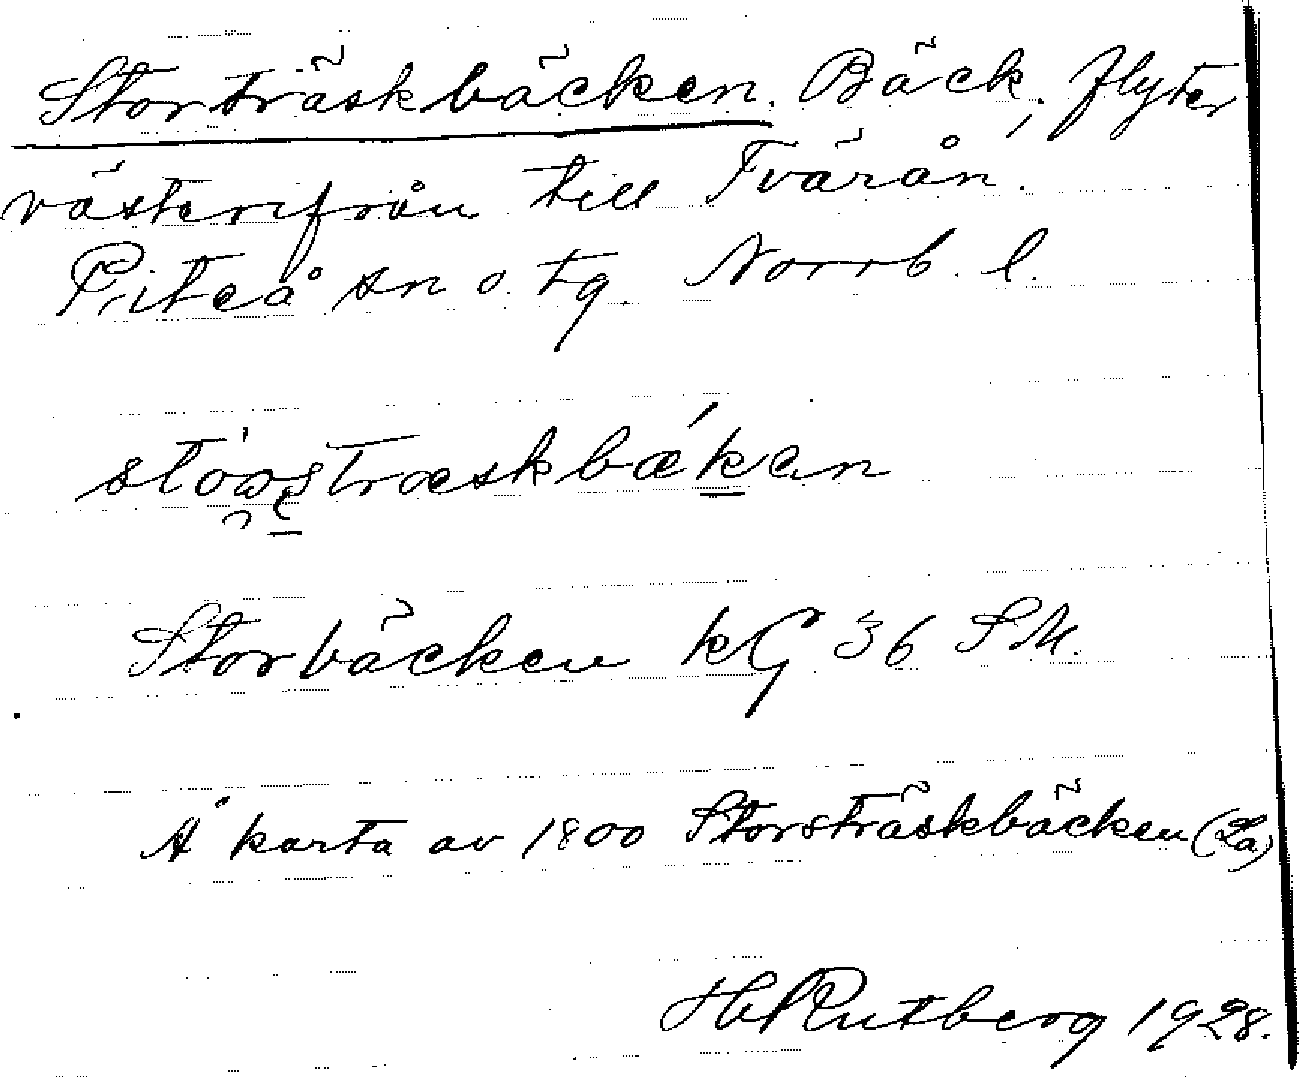 Storträskbäcken. Bäck, flyter
västerifrån till Tvärån.
Piteå sn o. tg. Norrb. l.
Storbäcken kG 36 SM.
Å karta av 1800 Storsträskbäcken (La)
Rutberg 1928.